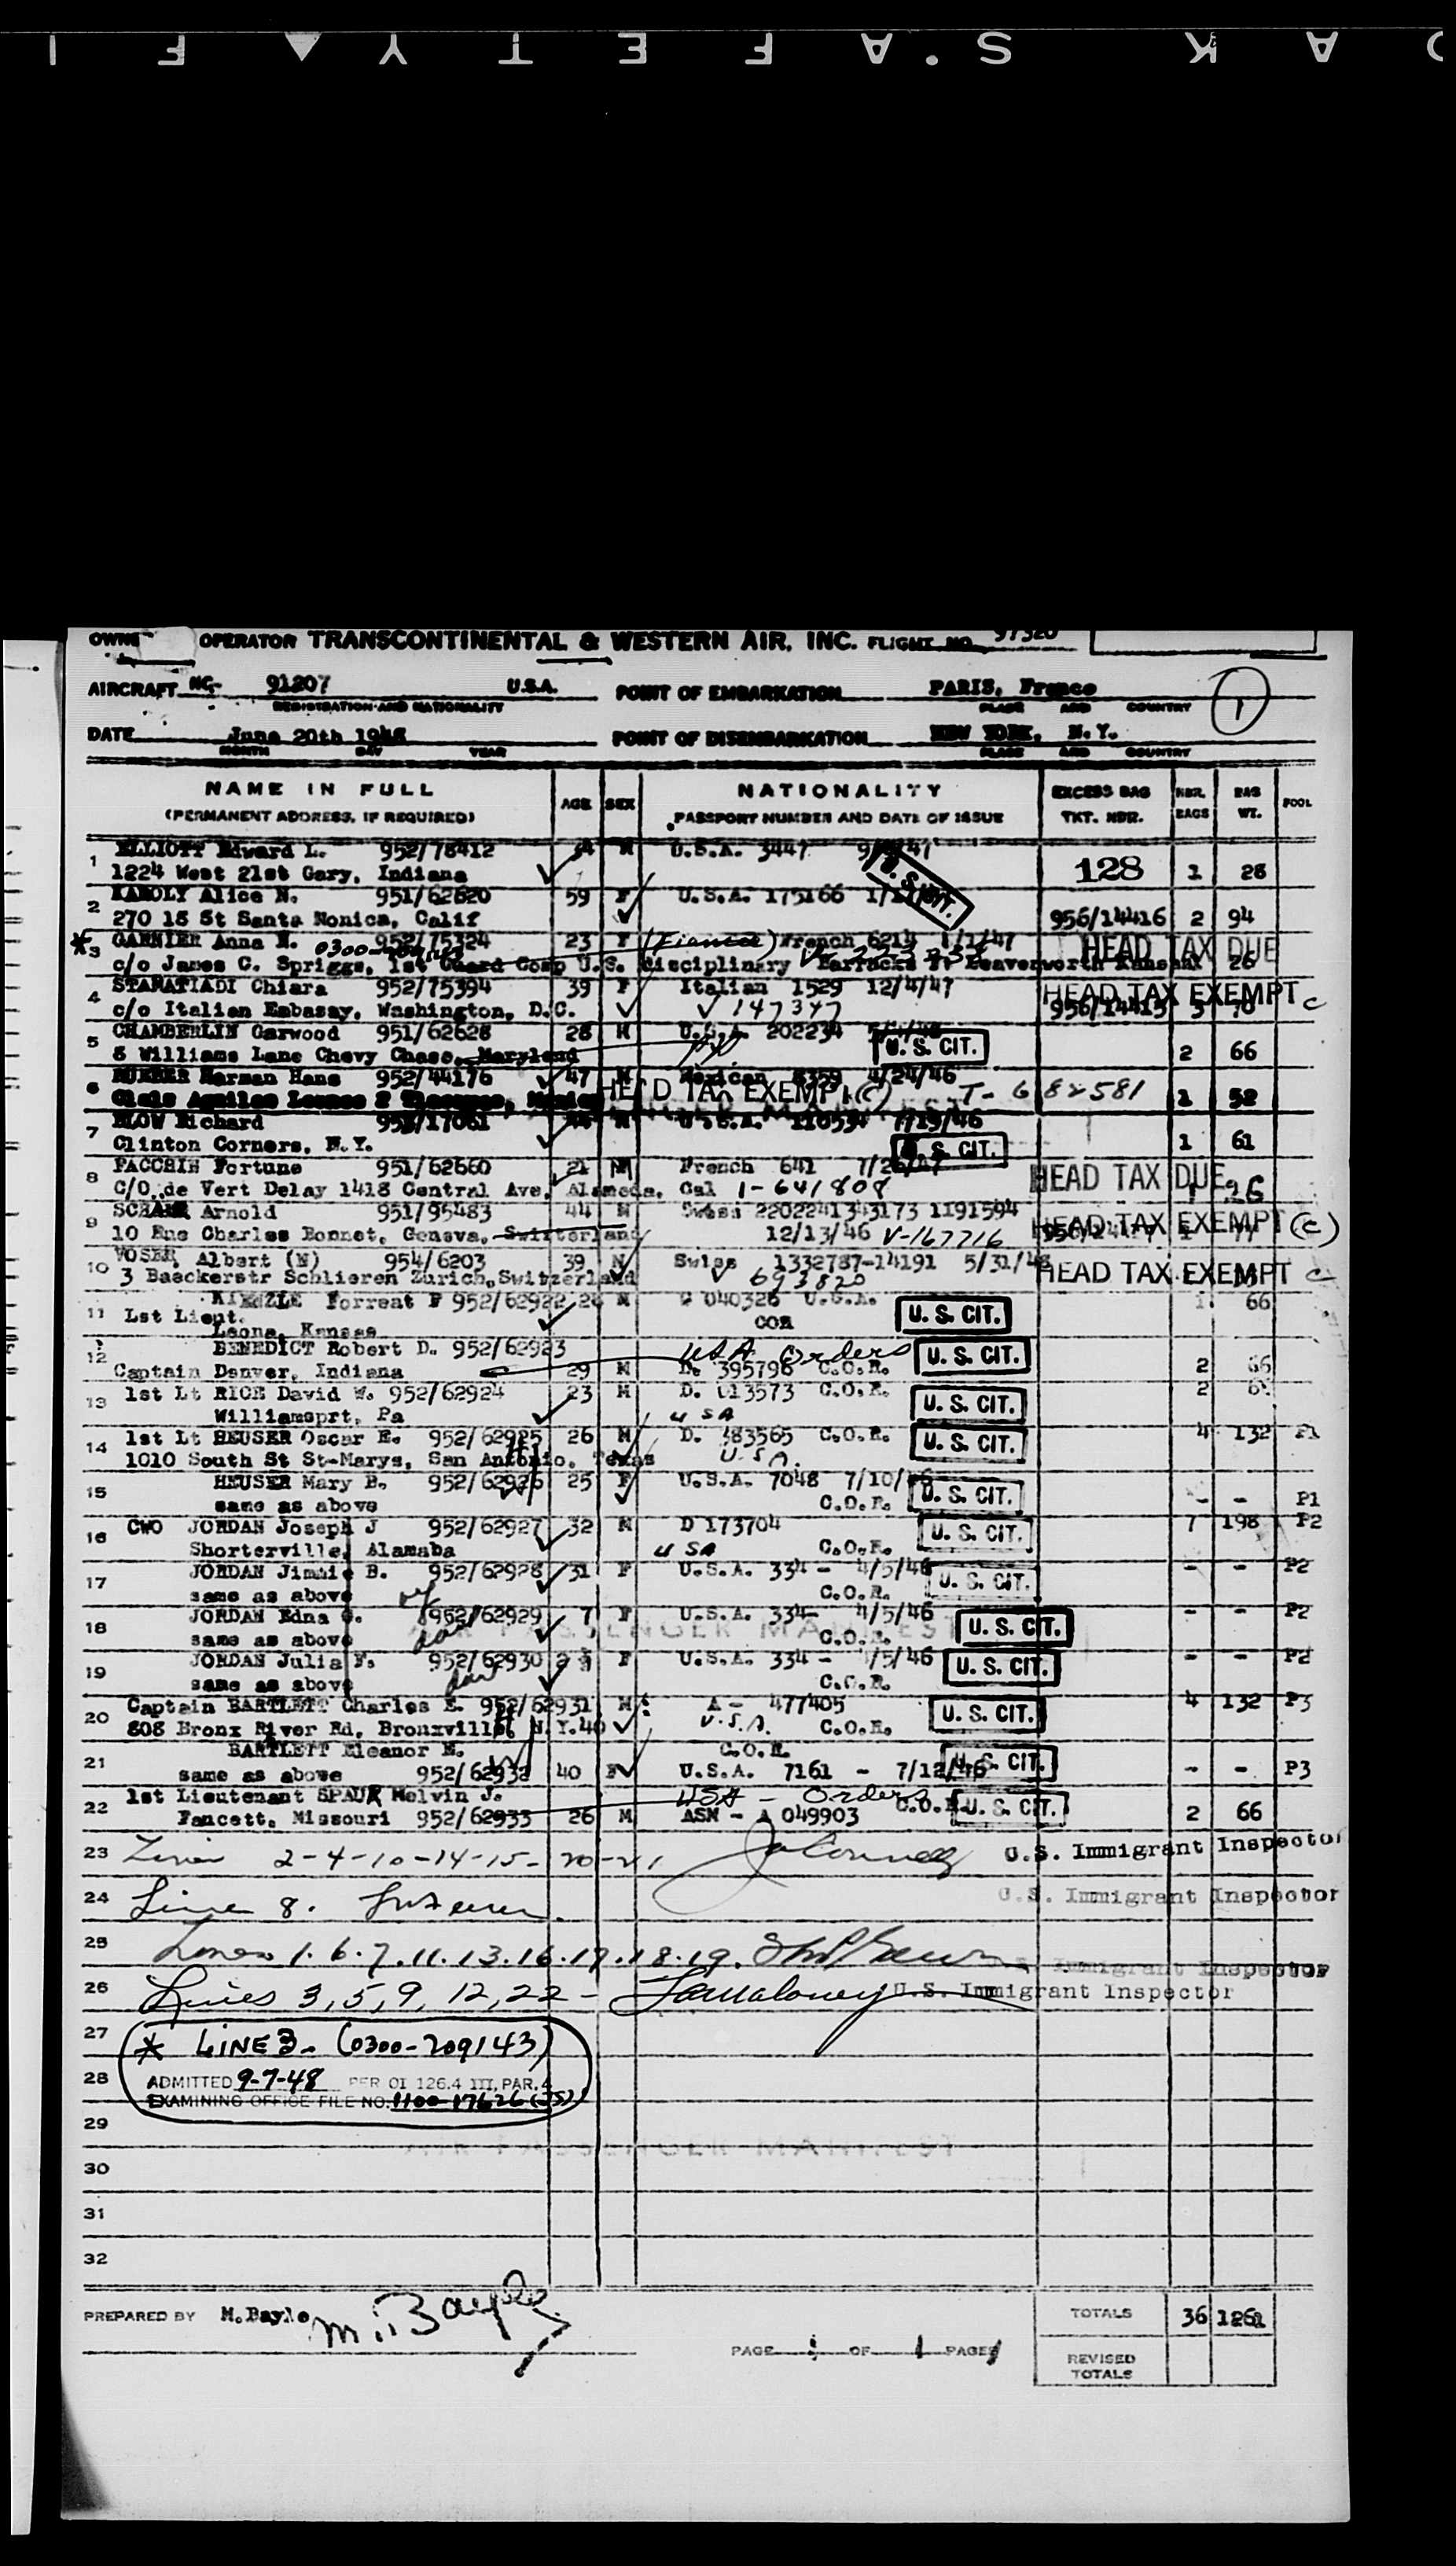 OPERATOR TRANSCONTINENTAL & WESTERN AIR, INC. FLIGHT NO. 97320
AIRCRAFT NC- 91207 U.S.A. POINT OF EMBARKATION PARIS, France
REGISTRATION AND NATIONALITY PLACE AND COUNTRY
1
DATE June 20th POINT OF DISEMBARKATION NEW YORK, N.Y.
MONTH DAY YEAR PLACE AND COUNTRY
NAME IN FULL
(PERMANENT ADDRESS, IF REQUIRED)
AGE SEX
NATIONALITY
PASSPORT NUMBER AND DATE OF ISSUE
EXCESS BAG TKT. NBR.
NBR. BAGS
BAG WT.
POOL
1 ELLIOTT Edward L. 952/78412 34 M U.S.A. 3447
1224 West 21st Gary, Indiana 128 1 28
2 KAROLY Alice N. 951/62620 59 F U.S.A. 175166
270 18 St Santa Monica, Calif 956/14416 2 94
*3 GARNIER Anna M. 952/75324 23 F French 6214 1/1/47 HEAD TAX DUE
c/o James C. Spriggs, 1st Guard Comp U.S. disciplinary Barracks Ft Leavenworth Kansas 26
4 STAMATIADI Chiara 952/75394 39 F Italian 1529 12/4/47 HEAD TAX EXEMPT c
c/o Italian Embassy, Washington, D.C. V 147347 956/14415 3 70
5 CHAMBERLIN Garwood 951/62628 28 M U.S.A. 202234 U.S. CIT.
8 Williams Lane Chevy Chase, Maryland 2 66
6 Herman Hans 952/44176 47 M Mexican 8359 4/24/46
HEAD TAX EXEMPT (C) T- 682581 1 52
7 BLOW Richard 17061 M U.S.A. 110534 7/19/46
Clinton Corners, N.Y. U.S. CIT. 1 61
8 PACCHIH Fortune 951/62660 21 M French 641 HEAD TAX DUE
C/O. de Vert Delay 1418 Central Ave, Alameda, Cal 1-641808 26
9 Arnold 951/95483 44 M Swiss 1191594 HEAD TAX EXEMPT (C)
10 Rue Charles Bonnet, Geneva, Switzerland 12/13/46 V-167716
10 VOSER, Albert (N) 954/6203 39 M Swiss 1332787-14191 5/31/48
3 Baeckerstr Schlieren Zurich, Switzerland V 693820 HEAD TAX EXEMPT c
11 1st Lieut. KIENZLE Forrest F 952/62922 M O 040326 U.S.A. U.S. CIT. 1 66
Leona, Kansas COR
12 BENEDICT Robert D. 952/62923 USA Orders U.S. CIT.
Captain Denver, Indiana 29 M D. 395796 C.O.R. 2 66
13 1st Lt RICE David W. 952/62924 23 M D. 013573 C.O.R. U.S. CIT. 2
Williamsprt, Pa USA
14 1st Lt HEUSER Oscar E. 952/62925 26 M D. 383565 C.O.R. U.S. CIT. 4 132 P1
1010 South St St-Marys, San Antonio, Texas U.S.A.
15 HEUSER Mary B. 952/62926 25 F U.S.A. 7048 U.S. CIT.
same as above C.O.R. - - P1
16 CWO JORDAN Joseph J 952/62927 32 M D 173704 U.S. CIT. 7 198 P2
Shorterville, Alamaba USA C.O.R.
17 JORDAN Jimmie B. 952/62928 31 F U.S.A. 334 - 4/5/46 U.S. CIT. - - P2
same as above C.O.R.
18 JORDAN Edna 952/62929 7 F U.S.A. 334- 4/5/46 U.S. CIT. - - P2
same as above C.O.R.
19 JORDAN Julia F. 952/62930 F U.S.A. 334 - 4/5/46 U.S. CIT. - - P2
same as above C.O.R.
20 Captain BARTLETT Charles E. 952/62931 M A - 477405 4 132 P3
808 Bronx River Rd, Bronxville, N.Y. 40 U.S.A. C.O.R. U.S. CIT.
21 BARTLETT Eleanor E. C.O.R. U.S. CIT.
same as above 952/62932 40 F U.S.A. 7161 - 7/12/46 - - P3
22 1st Lieutenant SPAUR Melvin J. USA - Orders C.O.R. U.S. CIT.
Fancett, Missouri 952/62933 26 M ASN - A 049903 2 66
23 Lines 2-4-10-14-15-20-21 U.S. Immigrant Inspector
24 Line 8. U.S. Immigrant Inspector
25 Lines 1.6.7.11.13.16.17.18.19. Immigrant Inspector
26 Lines 3, 5, 9, 12, 22 - U.S. Immigrant Inspector
27 * LINE 3- (0300-209143)
28 ADMITTED 9-7-48 PER OI 126.4 III, PAR. 4
EXAMINING OFFICE FILE NO. 1100-17626
29
AIR PASSENGER MANIFEST
30
31
32
PREPARED BY M. Bayle M. Bayle
TOTALS 36
PAGE OF 1 PAGES
REVISED TOTALS